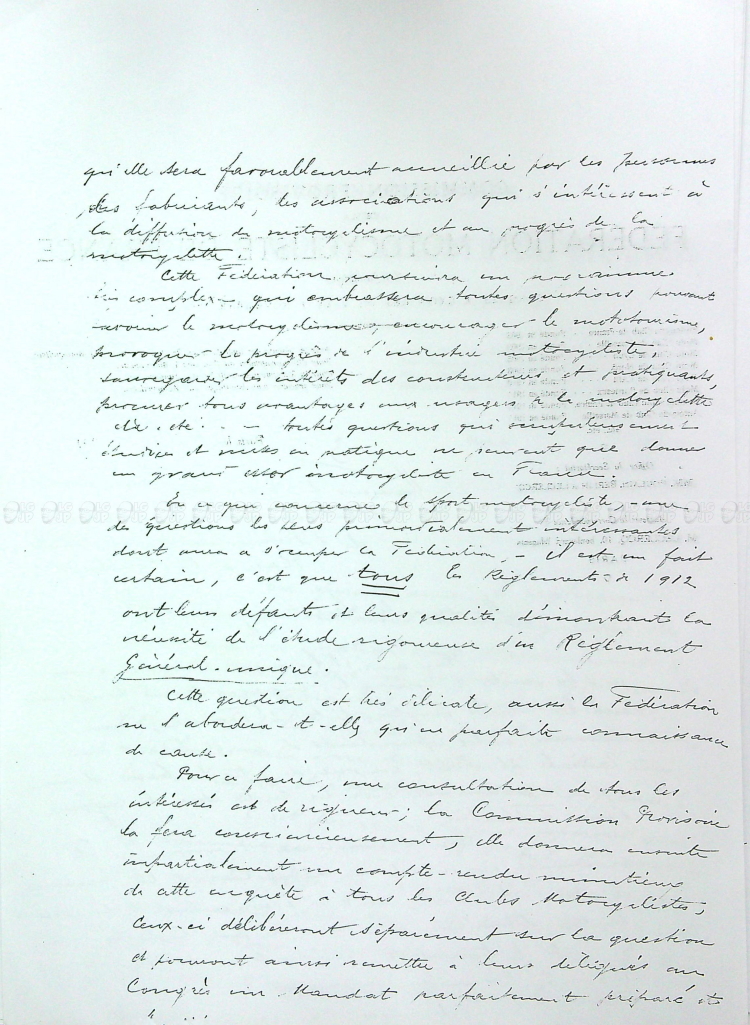 qu'elle sera favorablement accueillie par les personnes
les fabricants, les associations qui s'intéressent à
la diffusion du motocyclisme et au progrès de la
motocyclette
Cette Fédération poursuivra un programme
très complexe qui embrassera toutes questions pouvant
le motocyclisme, encourager le mototourisme,
provoquer le progrès de l'industrie motocycliste,
sauvegarder les intérêts des constructeurs et pratiquants,
procurer tous avantages aux usagers de la motocyclette
etc. etc. - toutes questions qui
étudiées et mises en pratique ne peuvent que donner
un grand essor motocycliste en France.
En ce qui concerne le Sport motocycliste - une
des questions les plus intéressantes
dont aura à s'occuper la Fédération, - il est un fait
certain, c'est que tous les Règlements de 1912
ont leurs défauts et leurs qualités démontrant la
nécessité de l'étude rigoureuse d'un Règlement
Général unique.
Cette question est très délicate, aussi la Fédération
ne l'abordera-t-elle qu'en parfaite connaissance
de cause.
Pour ce faire, une consultation de tous les
intéressés est de rigueur; la Commission Provisoire
la fera consciencieusement, elle donnera ensuite
impartialement un compte-rendu minutieux
de cette enquête à tous les Clubs Motocyclistes,
Ceux-ci délibéreront séparément sur la question
et pourront ainsi remettre à leurs délégués au
Congrès un Mandat parfaitement préparé et